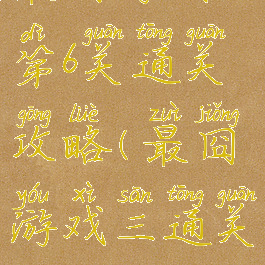 dì guān tōng guān
第6关通关
gōng lüè zuì jiǒng
攻略(最囧
yóu xì sān tōng guān
游戏三通关